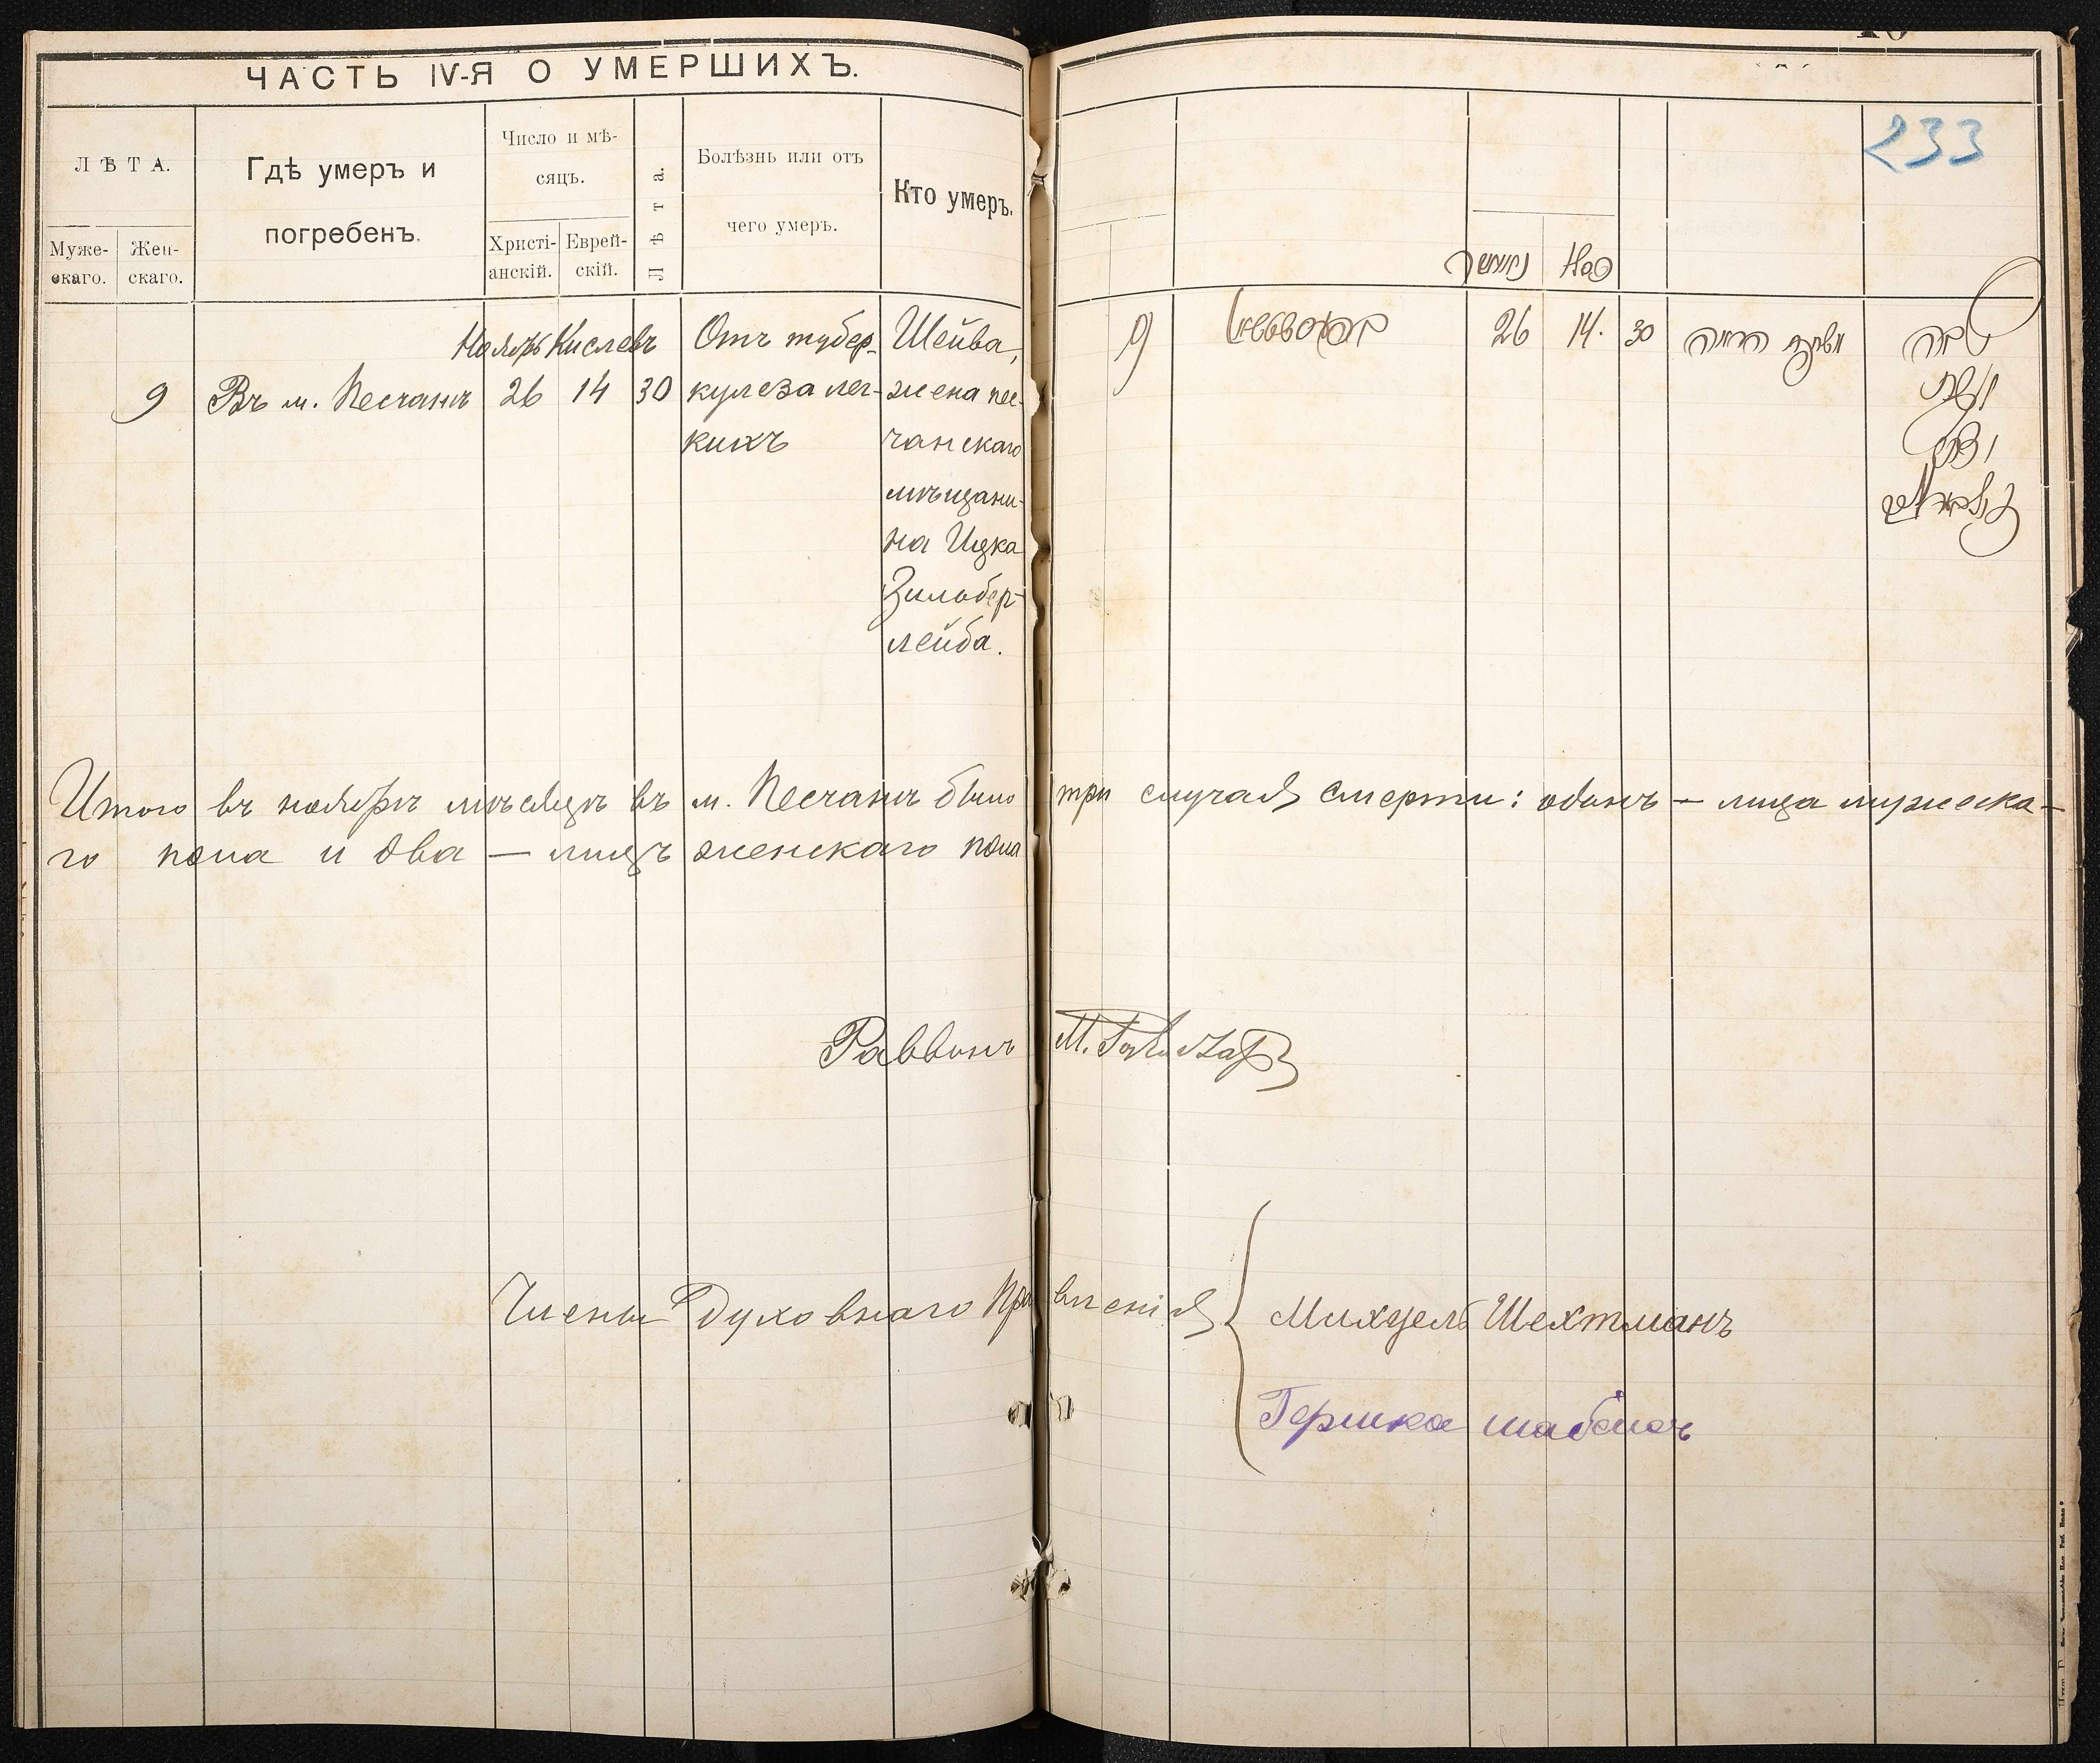 ЧАСТЬ IV-Я О УМЕРШИХЪ.
ЛѢТА.
Муже-
скаго.
Жен-
скаго.
Гдѣ умеръ и
погребенъ.
Число и мѣ-
сяцъ.
Христі-
анскій.
Еврей-
скій.
Лѣта.
Болѣзнь или отъ
чего умеръ.
Кто умеръ.
Ноябрь Кислевъ
9 Въ м. Песчанѣ 26 14 30
Отъ тубер-
кулеза лег-
кихъ
Шейва,
жена пес-
чанскаго
мѣщани-
на Ицка
Зильбер-
лейба.
233
9 26 14. 30
Итого въ ноябрѣ мѣсяцѣ въ м. Песчанѣ было три случая смерти: одинъ — лица мужеска-
го пола и два — лицъ женскаго пола
Раввинъ М.
Члены Духовнаго Правленія
Михуель Шехтманъ
Гершко